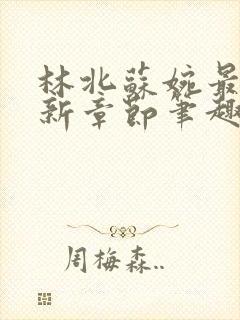 林北蘇婉最
新章節筆趣
周梅森..